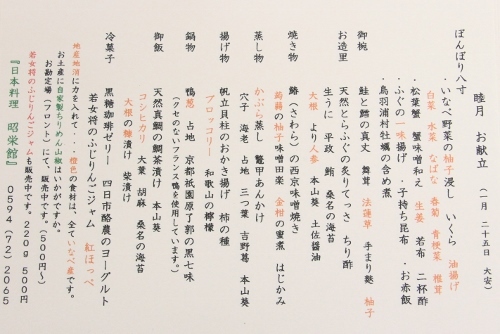 睦月　お献立　（一月　二十五日　大安）
ぼんぼり八寸
・いなさ野菜の柚子浸し　いくら　油揚げ
白菜　水菜　なばな　春菊　青梗菜　椎茸
・松葉蟹　蟹味噌和え　生姜　若布　二杯酢
・ふぐの一味揚げ　・子持ち昆布　・お赤飯
・鳥羽浦村牡蠣の含め煮
御椀
鮭と鱈の真丈　舞茸　法蓮草　手まり麩　柚子
お造里
天然とらふぐの炙りてっさ　ちり酢
生うに　平政　鮪　桑名の海苔
大根　より人参　本山葵　土佐醤油
焼き物
鰆（さわら）の西京味噌焼き
蒟蒻の柚子味噌田楽　金柑の蜜煮　はじかみ
蒸し物
かぶら蒸し　鼈甲あんかけ
穴子　海老　占地　三つ葉　吉野葛　本山葵
揚げ物
帆立貝柱のおかき揚げ　柿の種
ブロッコリー　和歌山の檸檬
鍋物
鴨葱　占地　京都祇園原了郭の黒七味
（クセのないフランス鴨を使用しています。）
御飯
天然真鯛の鯛茶漬け　本山葵
コシヒカリ　大葉　胡麻　桑名の海苔
大根の糠漬け　柴漬け
冷菓子
黒糖珈琲ゼリー　四日市酪農のヨーグルト
若女将のふじりんごジャム　紅ほっぺ
地産地消に力を入れて・・・橙色の食材は、全ていなべ産です。
お土産に自家製ちりめん山椒はいかがですか。
お勘定場（フロント）にて、販売中です。（５００円〜）
若女将のふじりんごジャムも販売中です。２２０ｇ　５００円
『日本料理　昭栄館』　０５９４（７２）２０６５